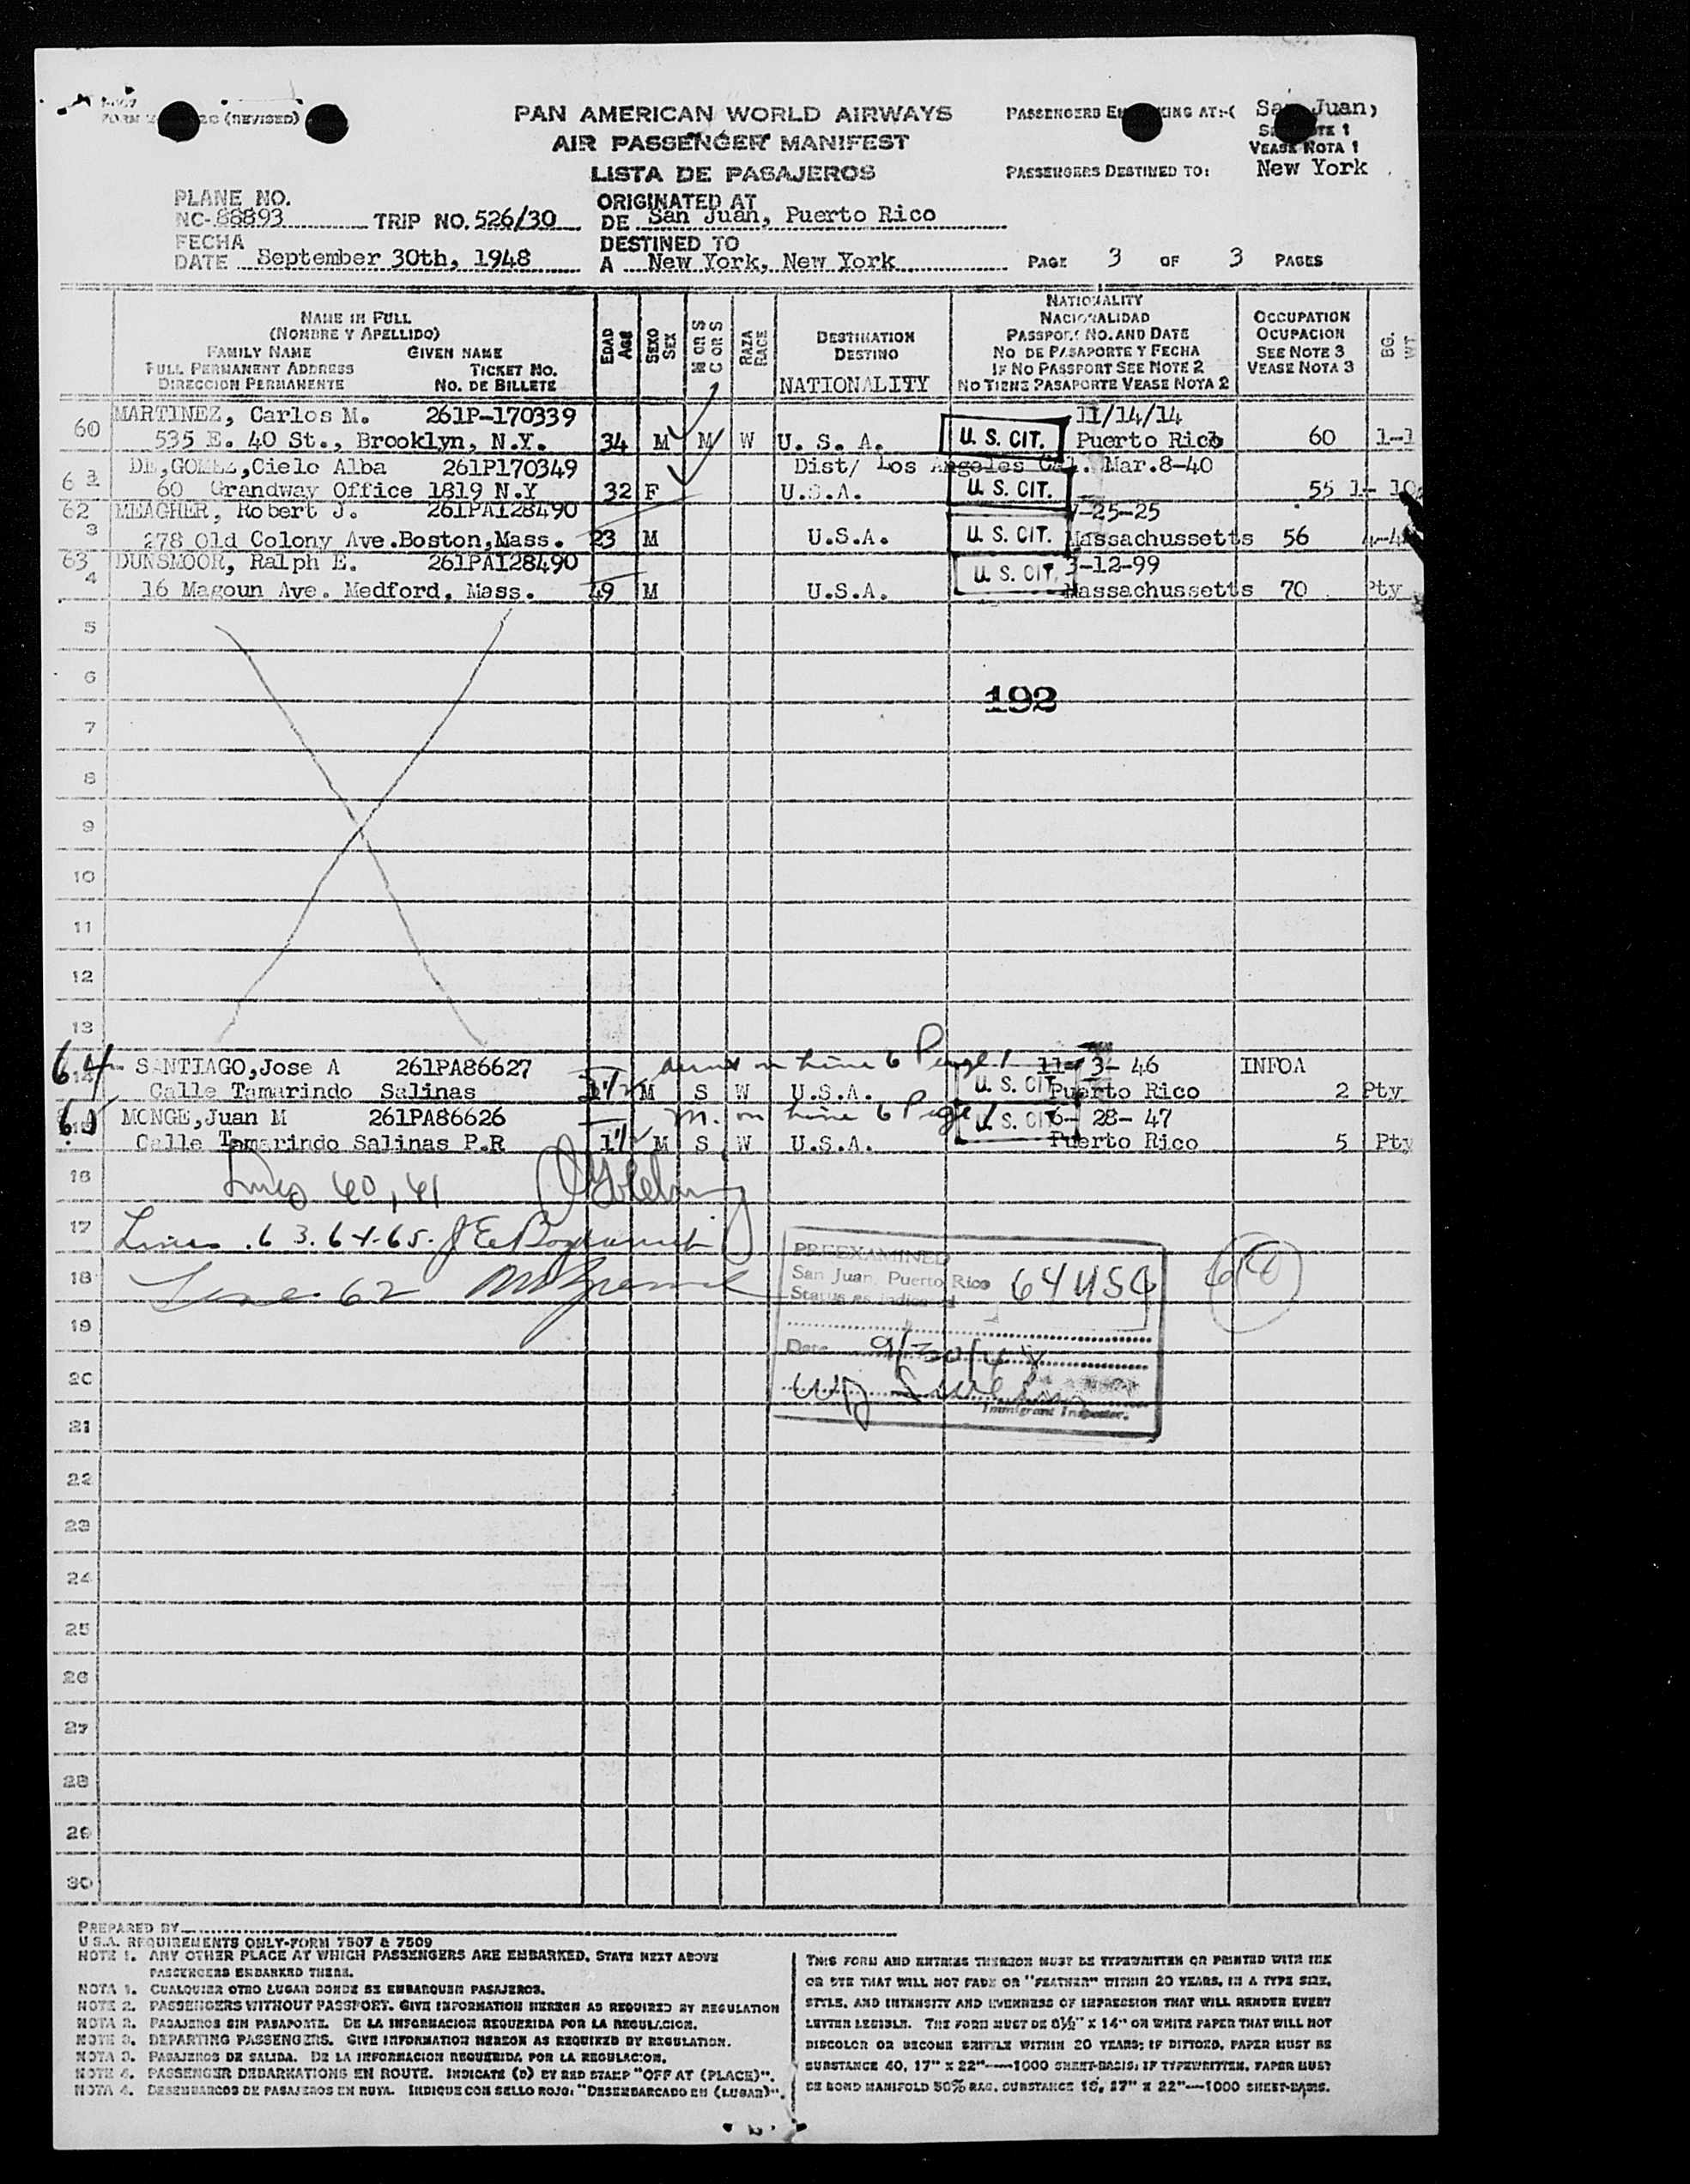 (REVISED)
PAN AMERICAN WORLD AIRWAYS
AIR PASSENGER MANIFEST
LISTA DE PASAJEROS
Juan,
VEASE NOTA 1
PASSENGERS DESTINED TO: New York
PLANE NO.
NC-88893 TRIP NO. 526/30
FECHA
DATE September 30th, 1948
ORIGINATED AT
DE San Juan, Puerto Rico
DESTINED TO
A New York, New York
PAGE 3 OF 3 PAGES
NAME IN FULL
(NOMBRE Y APELLIDO)
FAMILY NAME GIVEN NAME
FULL PERMANENT ADDRESS TICKET NO.
DIRECCION PERMANENTE NO. DE BILLETE
EDAD AGE
SEXO SEX
M OR S
C OR S
RAZA RACE
DESTINATION
DESTINO
NATIONALITY
NATIONALITY
NACIONALIDAD
PASSPORT NO. AND DATE
NO DE PASAPORTE Y FECHA
IF NO PASSPORT SEE NOTE 2
NO TIENE PASAPORTE VEASE NOTA 2
OCCUPATION
OCUPACION
SEE NOTE 3
VEASE NOTA 3
BG. WT
60 MARTINEZ, Carlos M. 261P-170339 11/14/14
535 E. 40 St., Brooklyn, N.Y. 34 M M W U. S. A. U. S. CIT. Puerto Rico 60 1-1
DE,GOMEZ,Cielo Alba 261P170349 Dist/ Los Angeles Cal. Mar.8-40
60 Grandway Office 1819 N.Y 32 F U.S.A. U. S. CIT. 55 1- 10
62 MEAGHER, Robert J. 261PA128490 -25-25
3 278 Old Colony Ave.Boston,Mass. 23 M U.S.A. U. S. CIT. Massachussetts 56
63 DUNSMOOR, Ralph E. 261PA128490 3-12-99
4 16 Magoun Ave. Medford, Mass. 49 M U.S.A. U. S. CIT. Massachussetts 70 Pty
5
6
192
7
8
9
10
11
12
13
64 SANTIAGO,Jose A 261PA86627 aunt on line 6 Page 1 11- 3- 46 INFOA
14 Calle Tamarindo Salinas 1 1/2 M S W U.S.A. U. S. CIT Puerto Rico 2 Pty
65 MONGE,Juan M 261PA86626 m. on line 6 Page 1 6- 28- 47
Calle Tamarindo Salinas P.R 1 1/2 M S W U.S.A. U. S. CIT Puerto Rico 5 Pty
16 Lines 60, 61
17 Lines 63. 64. 65.
18 Line 62
PREEXAMINED
San Juan, Puerto Rico 64 USC
Status as indicated
19
Date 9/30/48
20
Immigrant Inspector.
21
22
23
24
25
26
27
28
29
30
PREPARED BY
U.S.A. REQUIREMENTS ONLY-FORM 7507 & 7509
NOTE 1. ANY OTHER PLACE AT WHICH PASSENGERS ARE EMBARKED, STATE NEXT ABOVE
PASSENGERS EMBARKED THERE.
NOTA 1. CUALQUIER OTRO LUGAR DONDE SE EMBARQUEN PASAJEROS.
NOTE 2. PASSENGERS WITHOUT PASSPORT. GIVE INFORMATION HEREON AS REQUIRED BY REGULATION
NOTA 2. PASAJEROS SIN PASAPORTE. DE LA INFORMACION REQUERIDA POR LA REGULACION.
NOTE 3. DEPARTING PASSENGERS. GIVE INFORMATION HEREON AS REQUIRED BY REGULATION.
NOTA 3. PASAJEROS DE SALIDA. DE LA INFORMACION REQUERIDA POR LA REGULACION.
NOTE 4. PASSENGER DEBARKATIONS EN ROUTE. INDICATE (D) BY RED STAMP "OFF AT (PLACE)".
NOTA 4. DESEMBARCOS DE PASAJEROS EN RUTA. INDIQUE CON SELLO ROJO: "DESEMBARCADO EN (LUGAR)".
THIS FORM AND ENTRIES THEREON MUST BE TYPEWRITTEN OR PRINTED WITH INK
OR DYE THAT WILL NOT FADE OR "FEATHER" WITHIN 20 YEARS, IN A TYPE SIZE,
STYLE, AND INTENSITY AND EVENNESS OF IMPRESSION THAT WILL RENDER EVERY
LETTER LEGIBLE. THE FORM MUST BE 8½" X 14" ON WHITE PAPER THAT WILL NOT
DISCOLOR OR BECOME BRITTLE WITHIN 20 YEARS; IF DITTOED, PAPER MUST BE
SUBSTANCE 40, 17" X 22"—1000 SHEET-BASIS; IF TYPEWRITTEN, PAPER MUST
BE BOND MANIFOLD 50% RAG, SUBSTANCE 16, 17" X 22"—1000 SHEET-BASIS.